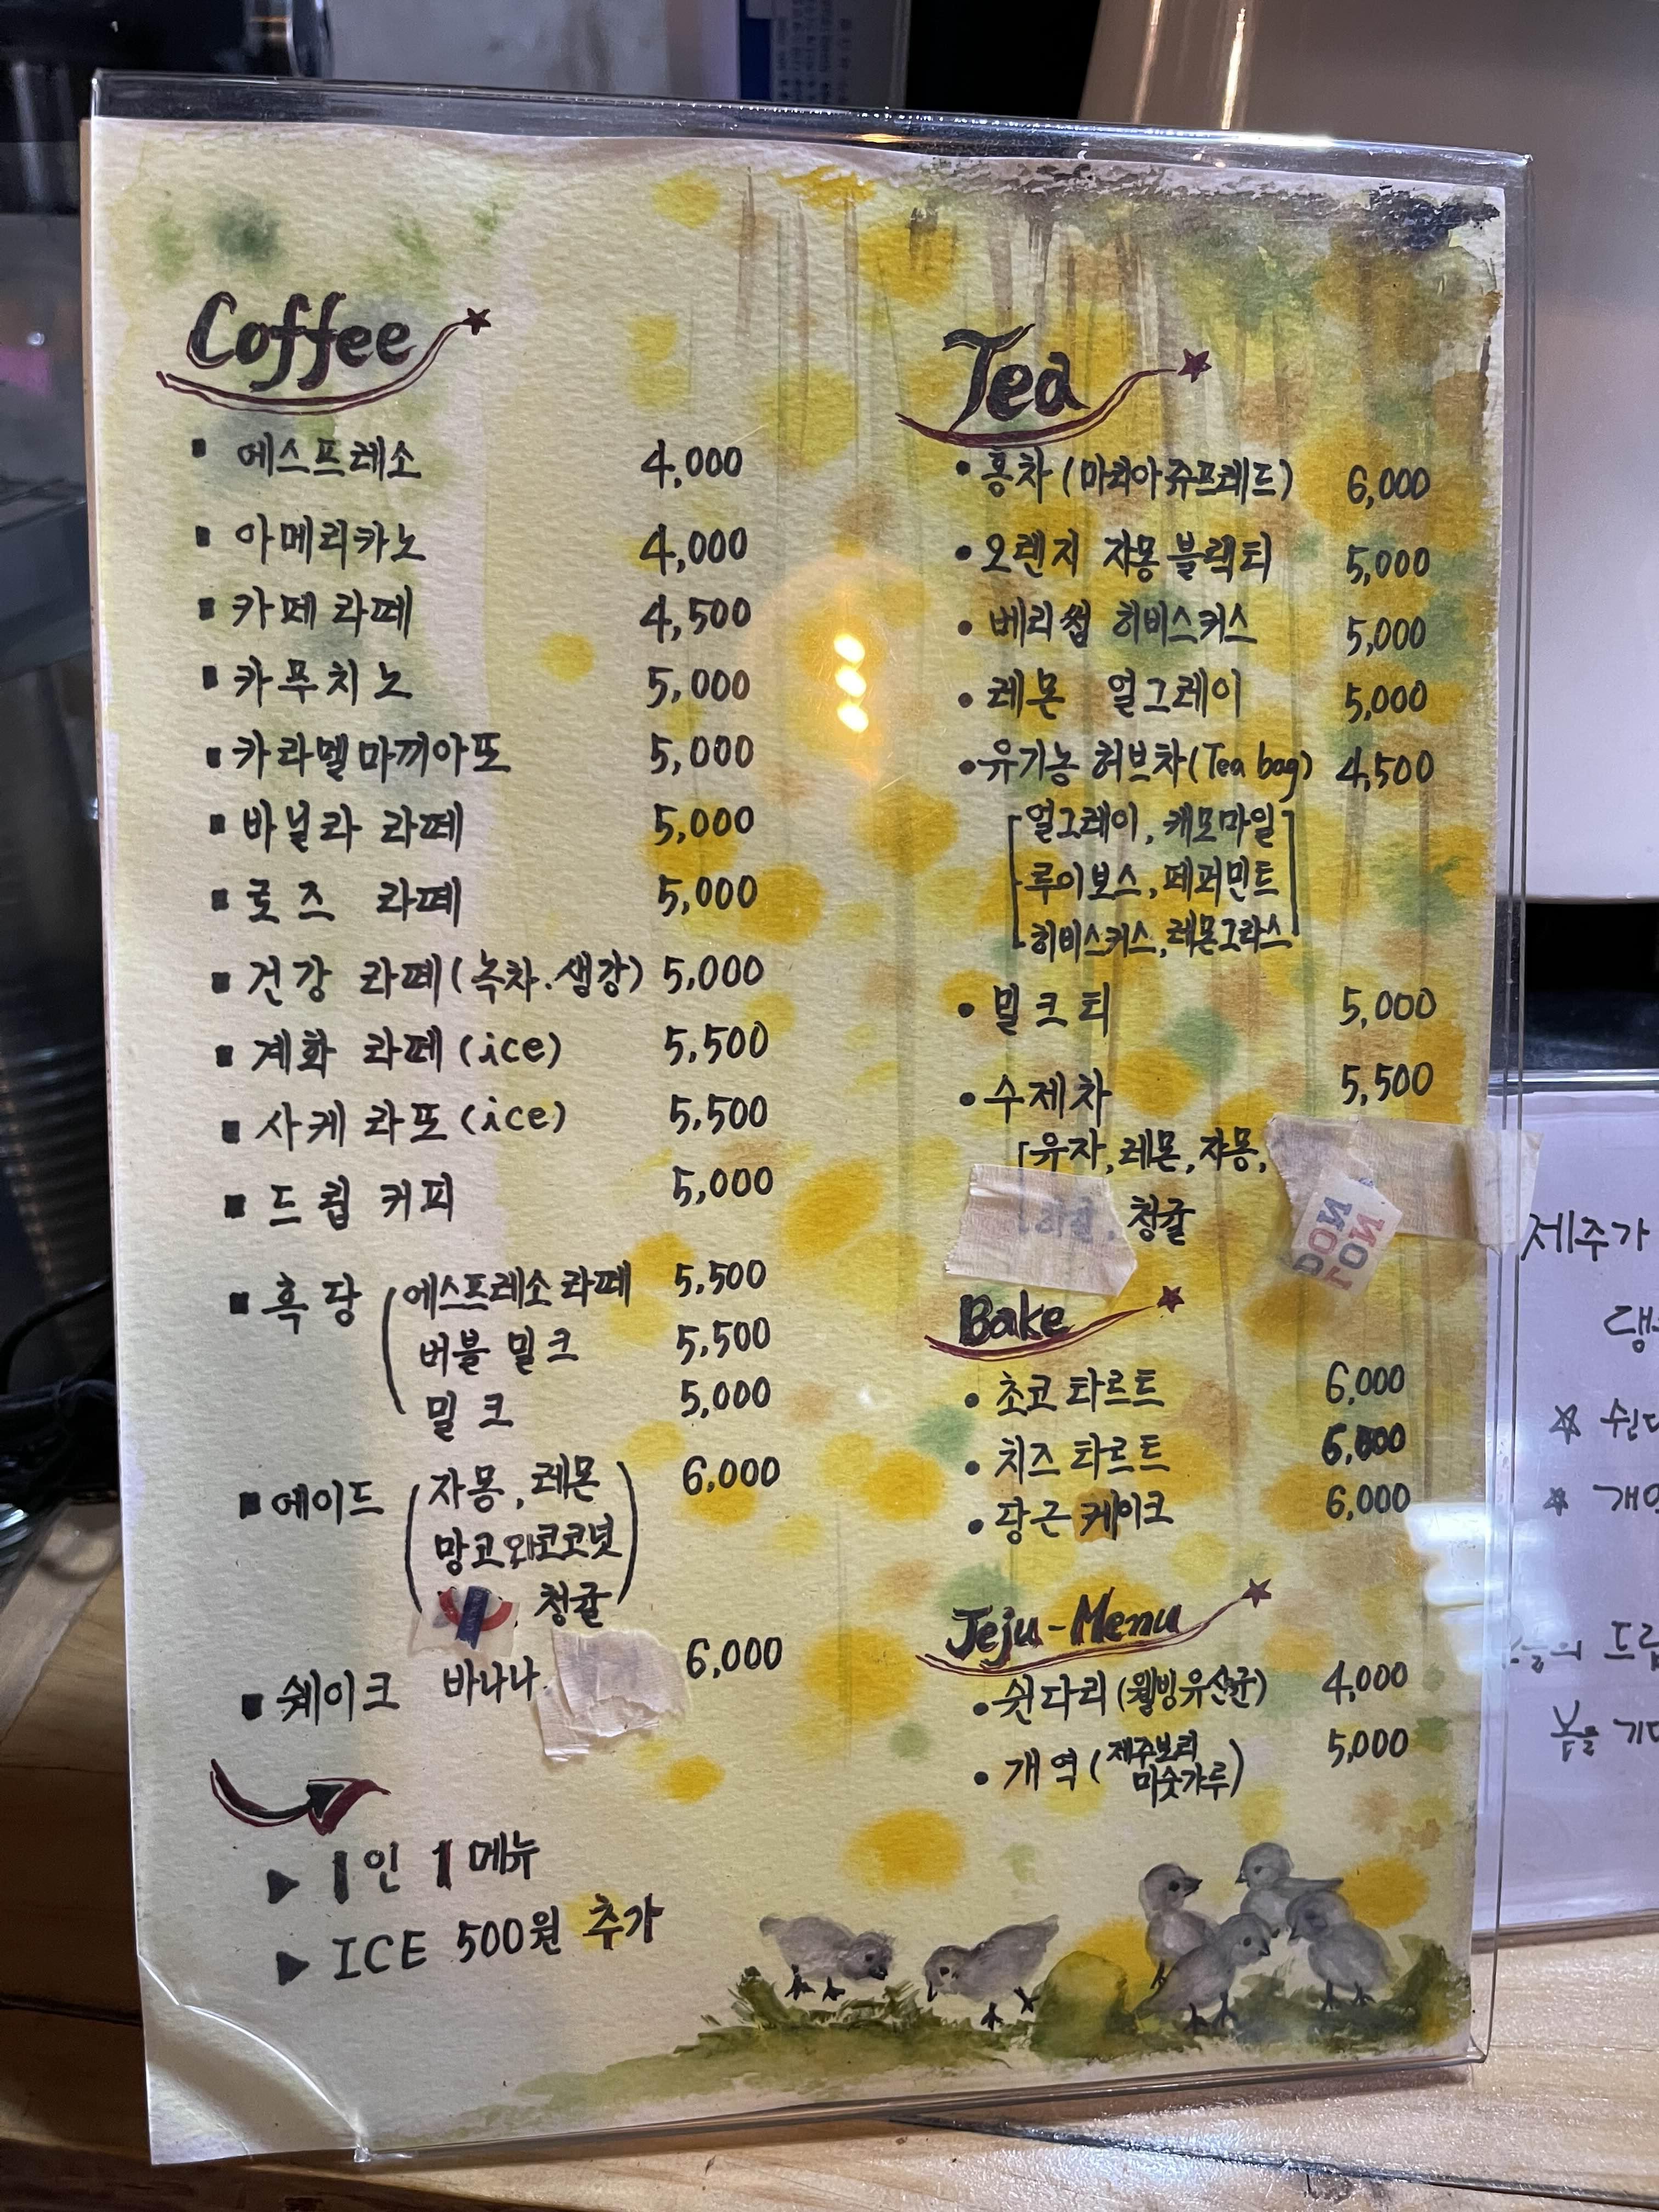 Coffee
에스프레소 4,000
아메리카노 4,000
카페라떼 4,500
카푸치노 5,000
카라멜마끼아또 5,000
바닐라 라떼 5,000
로즈 라떼 5,000
건강 라떼(녹차.생강) 5,000
계화 라떼(ice) 5,500
사케라또(ice) 5,500
드립커피 5,000
흑당 에스프레소라떼 5,500
버블 밀크 5,500
밀크 5,000
에이드 (자몽, 레몬 6,000
망고와코코넛
청귤)
쉐이크 바나나 6,000
▶ 1인 1메뉴
▶ ICE 500원 추가
Tea
홍차(마리아쥬프레드) 6,000
오렌지 자몽블랙티 5,000
베리썸 히비스커스 5,000
레몬 얼그레이 5,000
유기농 허브차(Tea bag) 4,500
[얼그레이, 캐모마일
루이보스, 페퍼민트
히비스커스, 레몬그라스]
밀크티 5,000
수제차 5,500
[유자, 레몬, 자몽,
, 청귤
NOON
NOT
Bake
초코타르트 6,000
치즈타르트
당근케이크 6,000
Jeju-Menu
쉰다리(웰빙유산균) 4,000
개역(제주보리 5,000
미숫가루)
제주가
☆ 쉰다
☆ 개역
드립